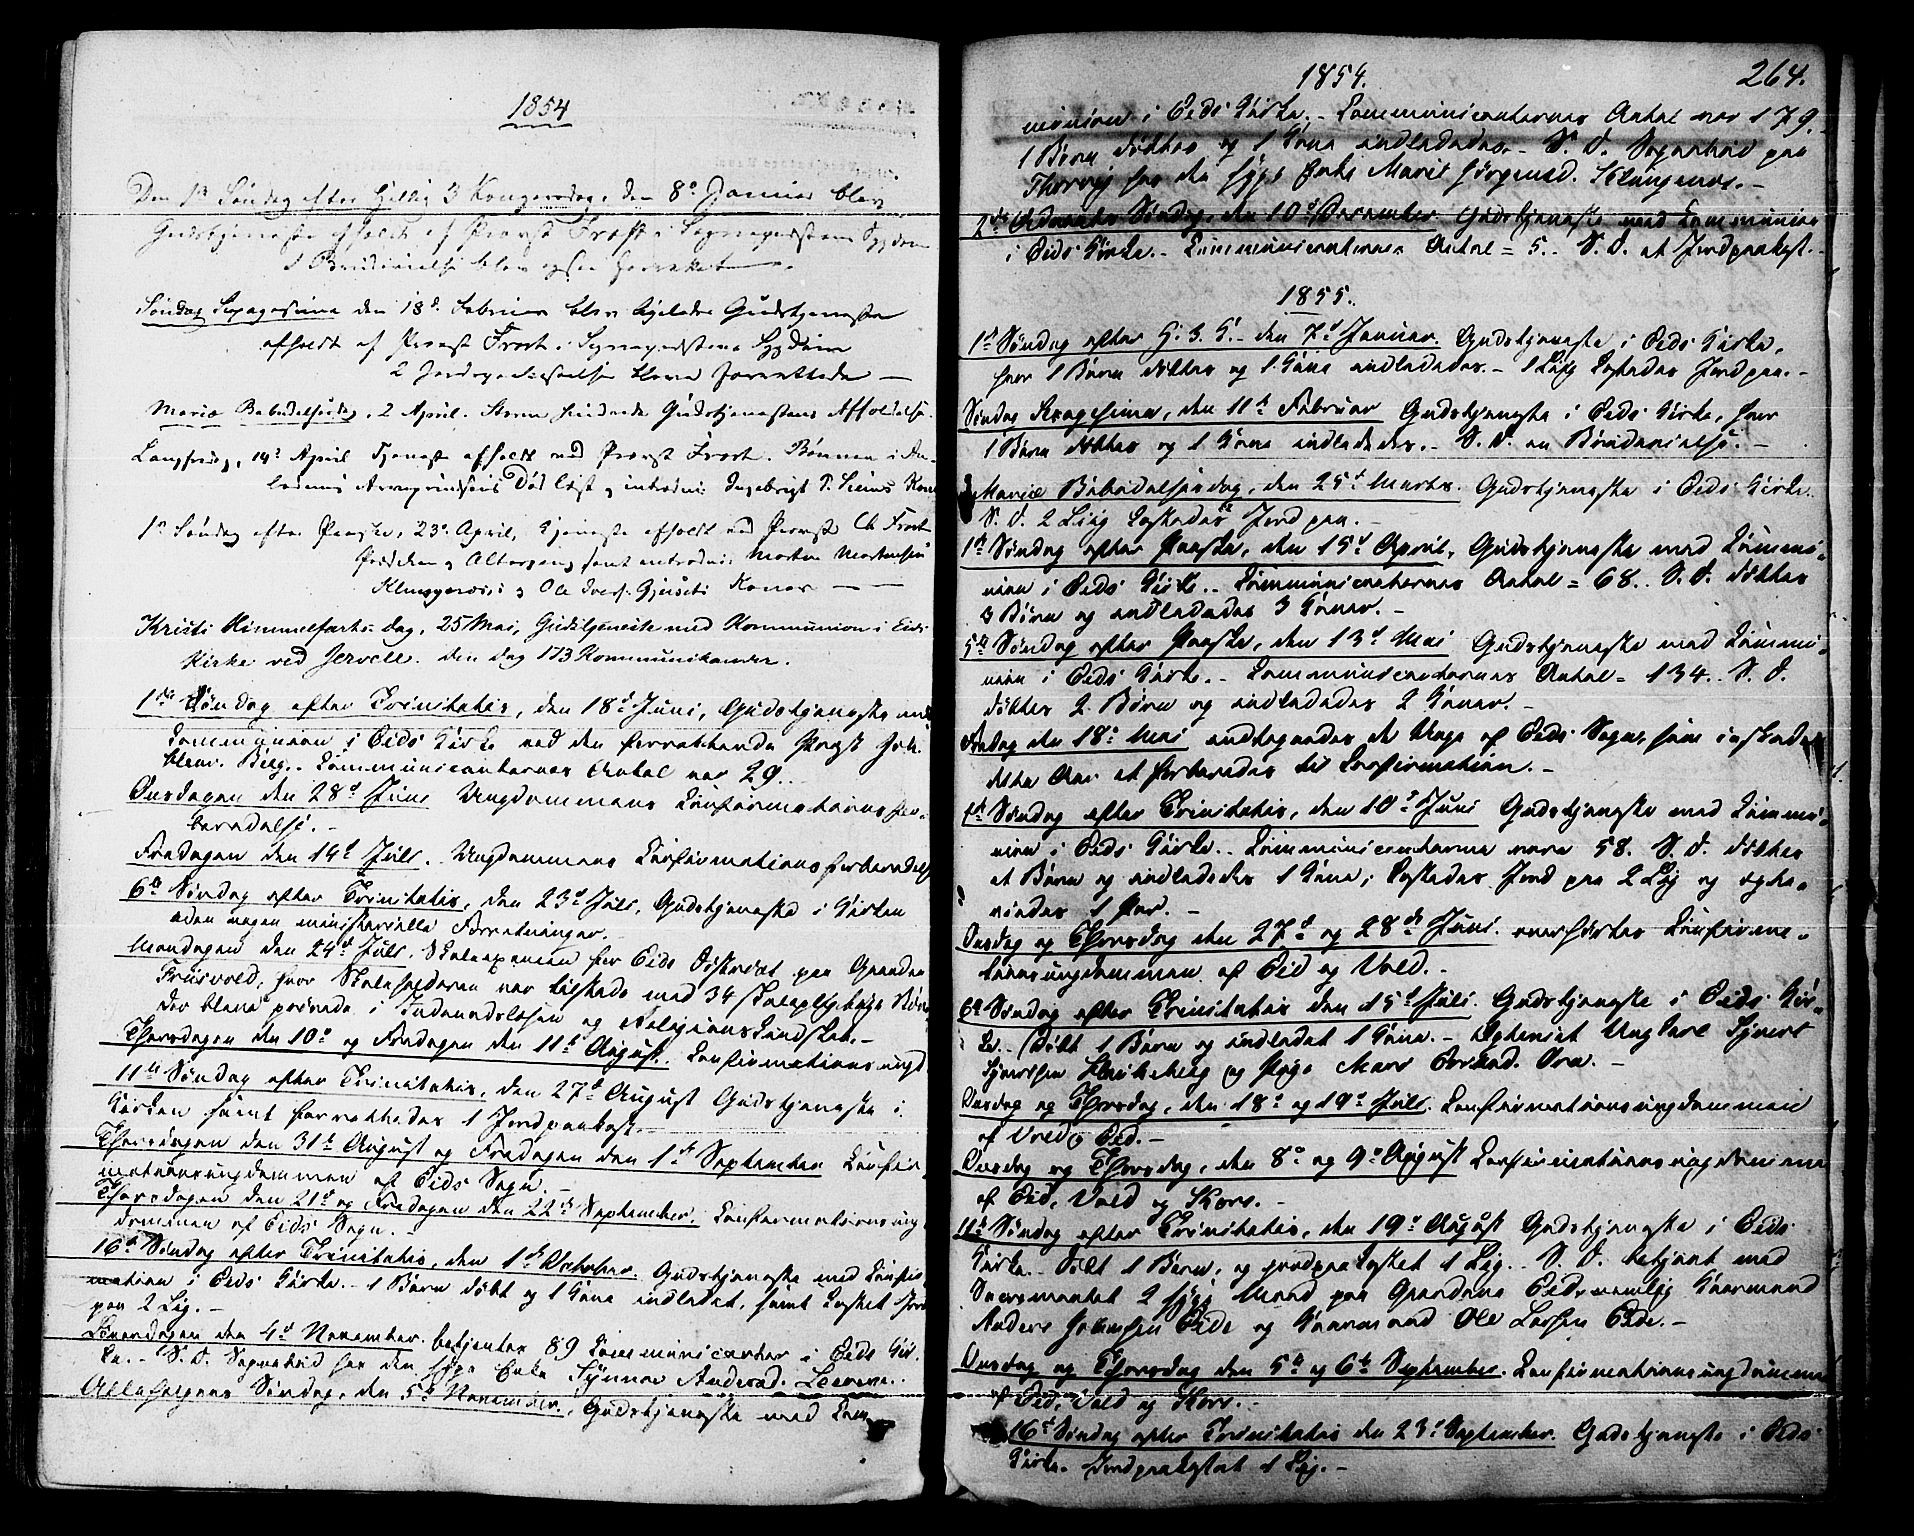 1854
Den 1ste Søndag efter Hellig 3 Kongersdag, den 8de Januar blev
Gudstjeneste afholdt af Provst Frost i Sognepræstens Sygdom
1 Brudevielse blev ogsaa forrettet
Søndag Sexagesima den 18de Februar blev ligeledes Gudstjeneste
afholdt af Provst Frost i Sognepræstens Sygdom
2 Jordspaakastelser bleve forrettede
Mariæ Bebudelsesdag, 2 April. Storm hindrede Gudstjenestens Afholdelse.
Langfredag, 14de April Tjeneste afholdt ved Provst Frost. Bønnen i An-
ledning Arveprindsens Død læst og introd: Ingebrigt P. Kone
1ste Søndag efter Paaske, 23de April, Tjeneste afholdt ved Provst Ch Frost
Prædiken og Altergang samt introd: Morten Mortensen
Klungenæs og Ole Ivers. Gjuseti Koner
Kristi Himmelfarts-dag, 25 Mai, Gudstjeneste med Kommunion i Eids
Kirke ved Jervell. den dag 173 Kommunikanter.
1ste Søndag efter Trinitatis, den 18de Juni, Gudstjeneste med
Communion i Eids Kirke ved den forrettende Præst Joh.
Berg. Communicanternes Antal var 29.
Onsdagen den 28de Juni Ungdommens Confirmationsfor-
beredelse.
Fredagen den 14de Juli. Ungdommens Confirmationsforberedelse
6te Søndag efter Trinitatis, den 23de Juli, Gudstjeneste i Kirken
uden nogen ministerielle Forretninger.
Mandagen den 24de Juli. Skoleexamen for Eids Distrikt paa Gaarden
Frisvold, hvor Skoleholderen var tilstede med 34 skolepligtige Børn,
der bleve prøvede i Indenadslæsen og Religionskundskab.
Thorsdagen den 10de og Fredagen den 11te August. Confirmationsungd.
11te Søndag efter Trinitatis, den 27de August Gudstjeneste i
Kirken samt forrettedes 1 Jordpaakast.
Thorsdagen den 31te August og Fredagen den 1ste September Confir-
mationsungdommen af Eids Sogn.
Thorsdagen den 21de og Fredagen den 22de September. Confirmationsung-
dommen af Eids Sogn.
16de Søndag efter Trinitatis, den 1ste October. Gudstjeneste med Confir-
mation i Eids Kirke. 1 Barn døbt og 1 Kone indledet, samt kastet Jord
paa 2 Lig.
Løverdagen den 4de November. betjentes 89 Communicanter i Eids Kir-
ke. S. D. Sognebud hos den syge Enke Synnøv Andersd.
Allehelgens Søndag, den 5te November, Gudstjeneste med Com-
1854.
264.
munion i Eids Kirke. Communicanternes Antal var 179.
1 Barn døbtes og 1 Kone indledes. S. D. Sognebud paa
Thorvig hos den syge Enke Marit Jørgensd. Klungenæs.
2den Advents Søndag, den 10de December Gudstjeneste med Communion
i Eids Kirke. Communicanternes Antal = 5. S. D. et Jordpaakast.
1855.
1ste Søndag efter H. 3 K. den 7de Januar. Gudstjeneste i Eids Kirke,
hvor 1 Barn døbtes og 1 Kone indledes. 1 Liig kastedes Jord paa.
Søndag Sexagesima, den 11te Februar Gudstjeneste i Eids Kirke, hvor
1 Barn døbtes og 1 Kone indledes. S. D. en Brudevielse.
Mariæ Bebudelsesdag, den 25de Marts. Gudstjeneste i Eids Kirke.
S. D. 2 Liig kastedes Jord paa.
1ste Søndag efter Paaske, den 15de April, Gudstjeneste med Commu-
nion i Eids Kirke. Communicanternes Antal = 68. S. D. døbtes
3 Børn og indledes 3 Koner.
5te Søndag efter Paaske, den 13de Mai Gudstjeneste med Commu-
nion i Eids Kirke. Communicanternes Antal = 134. S. D.
døbtes 2 Børn og indledes 2 Koner.
Fredag den 18de Mai antegnedes de Unge af Eids Sogn, som ønskede
dette Aar at forberedes til Confirmation.
1ste Søndag efter Trinitatis, den 10de Juni Gudstjeneste med Commu-
nion i Eids Kirke. Communicanterne vare 58. S. D. døbtes
et Barn og indledes 1 Kone; kastedes Jord paa 2 Lig og egte-
viedes 1 Par.
Onsdag og Thorsdag den 27de og 28de Juni. overhørtes Confirma-
tionsungdommen af Eid og Vold.
6te Søndag efter Trinitatis den 15de Juli. Gudstjeneste i Eids Kir-
ke. Døbt 1 Barn og indledet 1 Kone. Egteviet Ungkarl Syvert
Syvertsen og Pige
Onsdag og Thorsdag, den 18de og 19de Juli. Confirmationsungdommen
af Vold og Eid.
Onsdag og Thorsdag, den 8de og 9de August Confirmationsungdommen
af Eid, Vold og Hov.
11te Søndag efter Trinitatis, den 19de August Gudstjeneste i Eids
Kirke. Døbt 1 Barn, og jordpaakastet 1 Lig. S. D. betjent med
Sacramentet 2 syge Mænd paa Gaarden Eide nemlig Gaarmand
Anders Johansen Eide og Gaarmand Ole Larsen Eide.
Onsdag og Thorsdag den 5te og 6te September. Confirmationsungdommen
af Eid, Vold og Hov.
16de Søndag efter Trinitatis den 23de September. Gudstjeneste i Eids
Kirke. Jordpaakastet 1 Lig.